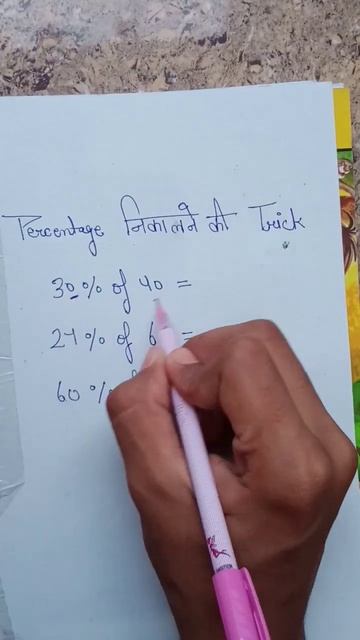 Percentage निकालने की Trick
30% of 40 =
24% of 6 =
60%